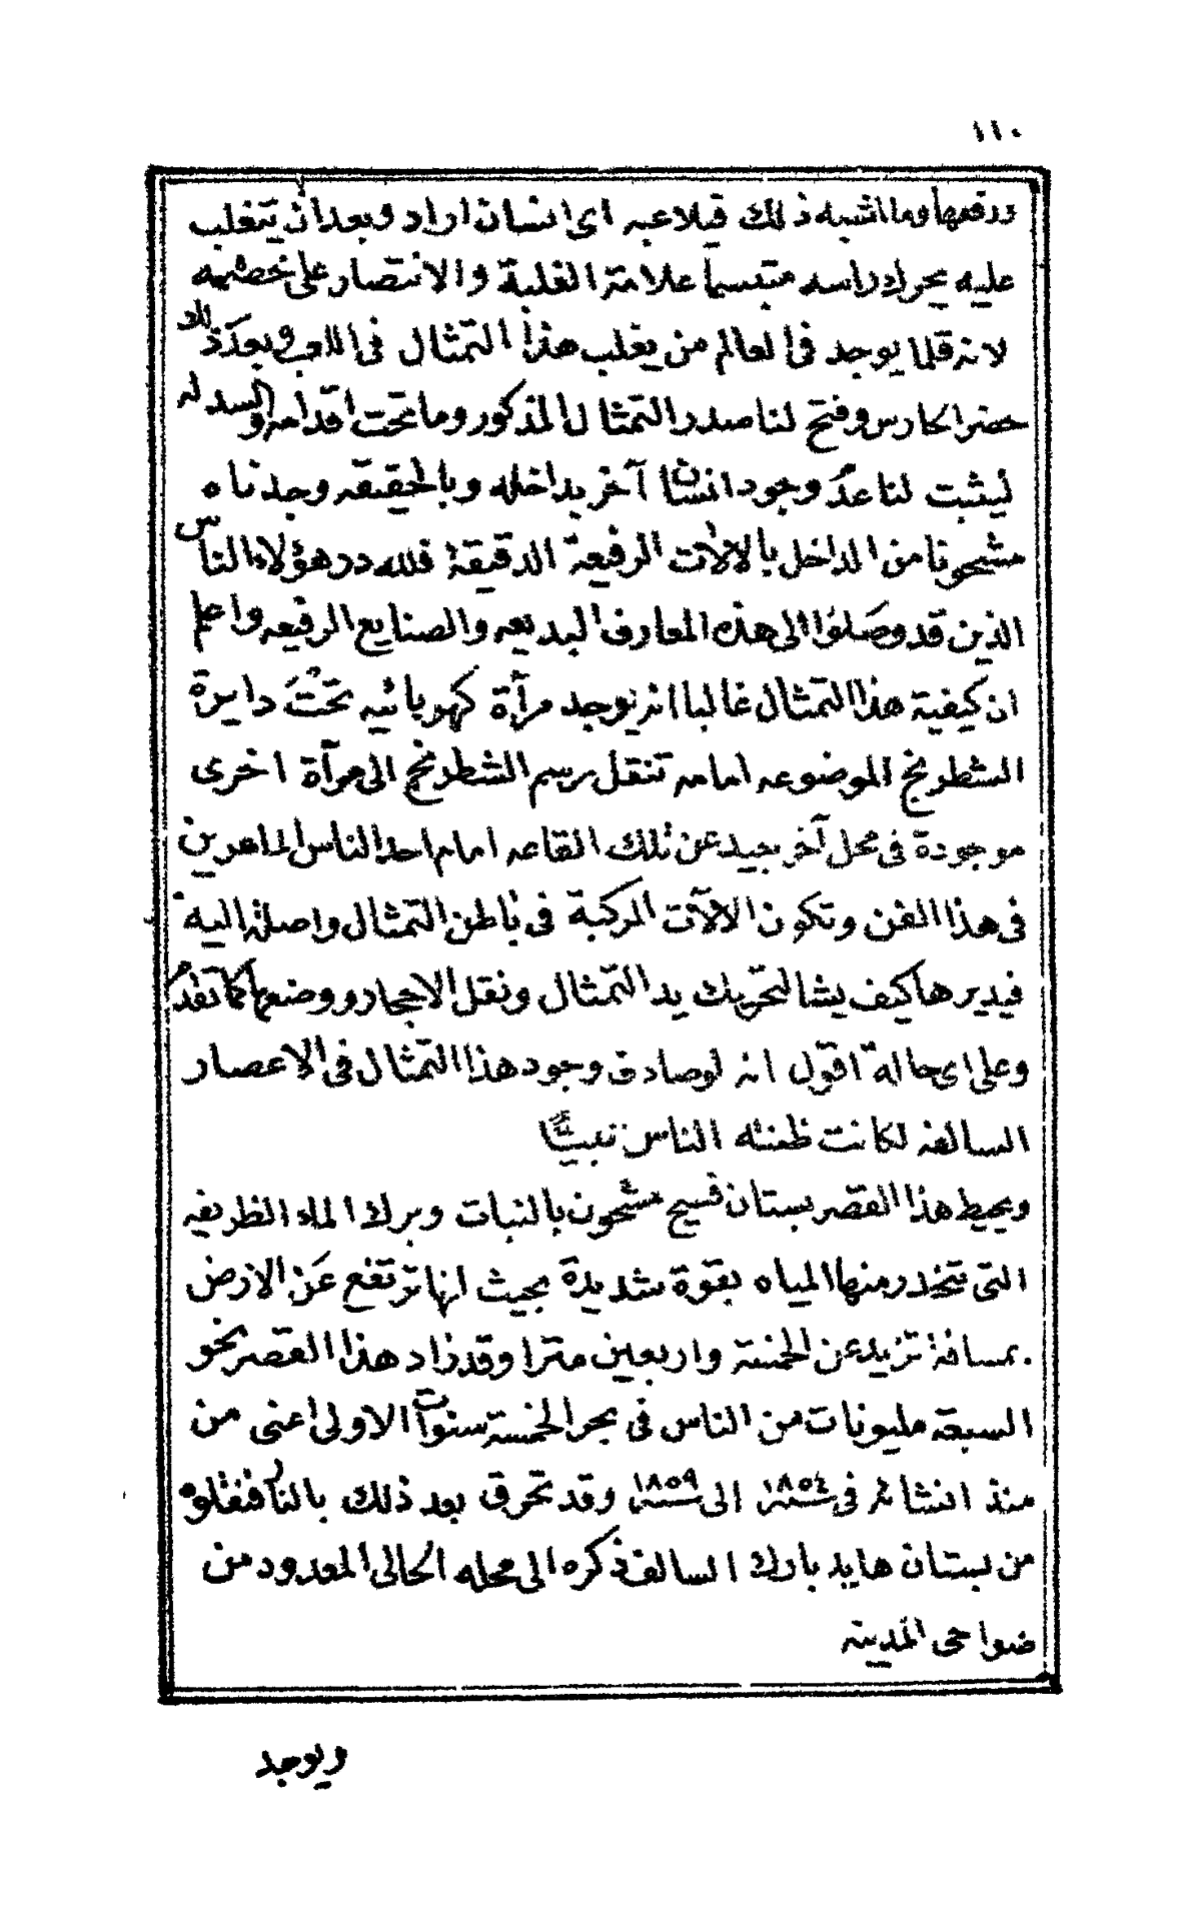 ١١٠
ورقعها وما اشبه ذلك فيلاعبه اى انسان اراد وبعد ان يتغلب
عليه يحرك راسه متبسما علامة الغلبة والانتصار على خصمه
لانه قلما يوجد فى العالم من يغلب هذا التمثال فى اللعب وبعد ذلك
حضر الحارس وفتح لنا صدر التمثال المذكور وما تحت اقدامه والسدله
ليثبت لنا عدم وجود انسان آخر بداخله وبالحقيقه وجدناه
مشحونا من الداخل بالالات الرفيعة الدقيقة فلله در هؤلاء الناس
الذين قد وصلوا الى هذه المعارف البديعه والصنايع الرفيعه واعلم
ان كيفية هذا التمثال غالبا انه يوجد مرآة كهربائيه تحت دايرة
الشطرنج الموضوعه امامه تنقل رسم الشطرنج الى مرآة اخرى
موجودة فى محل آخر بعيد عن تلك القاعه امام احد الناس الماهرين
فى هذا الفن وتكون الالآت المركبة فى باطن التمثال واصلة اليه
فيديرها كيف يشا لتحريك يد التمثال ونقل الاحجار ووضعها كما تقدم
وعلى اى حالة اقول انه لو صادف وجود هذا التمثال فى الاعصار
السالفه لكانت ظنته الناس نبيّاً
ويحيط هذا القصر بستان فسيح مشحون بالنباتات وبرك الماء الظريفه
التى تتحدر منها المياه بقوة شديدة بحيث انها ترتفع عن الارض
بمسافة تزيد عن الخمسة واربعين مترا وقد زاد هذا القصر نحو
السبعة مليونات من الناس فى بحر الخمسة سنوات الاولى اعنى من
منذ انشائه فى سنة ١٨٥٤ الى سنة ١٨٥٩ وقد تحرق بعد ذلك بالنار فنقلوه
من بستان هايد بارك السالف ذكره الى محله الحالى المعدود من
ضواحى المدينه
ويوجد